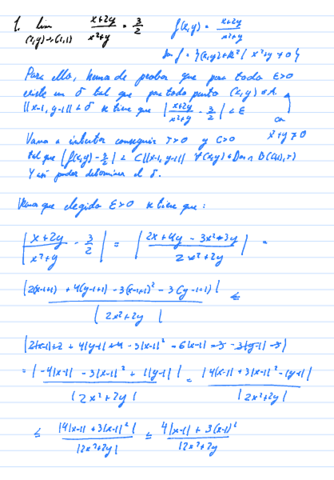 1. lim (x,y)→(1,1) x+2y / x²+y = 3/2    f(x,y) = x+2y / x²+y
Dom f = {(x,y)∈ℝ² | x²+y ≠ 0}
Para ello, hemos de probar que para todo ε>0
existe un δ tal que para todo punto (x,y) ∈ A
||x-1, y-1|| < δ se tiene que |x+2y / x²+y - 3/2| < ε
x²+y ≠ 0
Vamos a intentar conseguir r>0 y C>0
tal que |f(x,y) - 3/2| < C||x-1, y-1|| ∀(x,y) ∈ Dom ∩ B((1,1), r)
Y así poder determinar el δ.
Vemos que elegido ε>0 se tiene que:
|x+2y / x²+y - 3/2| = |2x+4y-3x²-3y / 2x²+2y| =
|2(x-1+1) + 4(y-1+1) - 3(x-1+1)² - 3(y-1+1)| / |2x²+2y| ≤
|2(x-1)+2 + 4(y-1)+4 - 3(x-1)² - 6(x-1) - 3 - 3(y-1) - 3|
= |-4(x-1) - 3(x-1)² + 1(y-1)| / |2x²+2y| = |4(x-1) + 3(x-1)² - (y-1)| / |2x²+2y|
≤ |4(x-1) + 3(x-1)²| / |2x²+2y| ≤ 4|x-1| + 3(x-1)² / |2x²+2y|